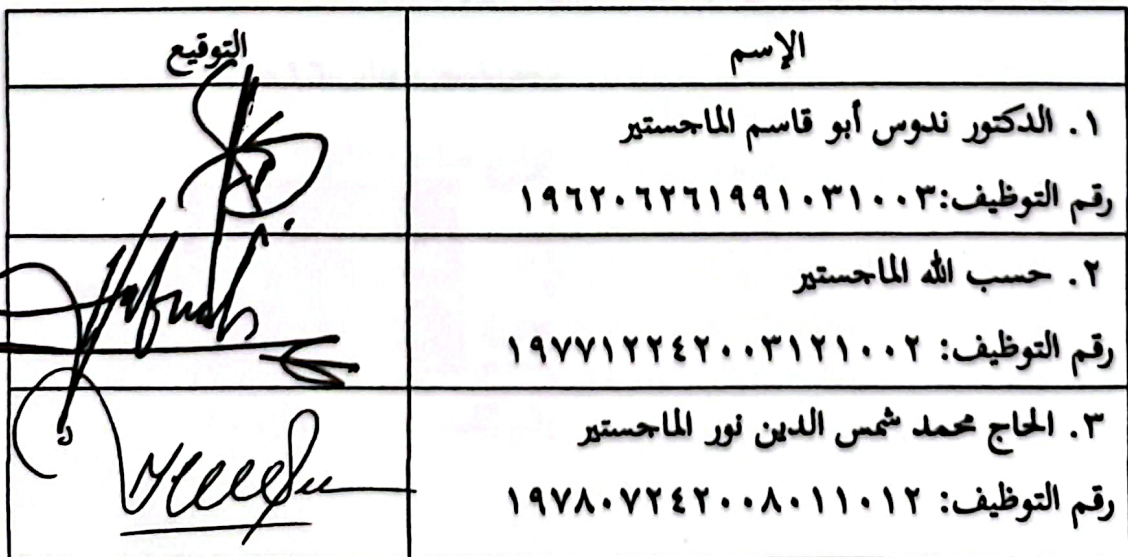 الإسم
التوقيع
١. الدكتور ندوس أبو قاسم الماجستير
رقم التوظيف:١٩٦٢٠٦٢٦١٩٩١٠٣١٠٠٣
٢. حسب الله الماجستير
رقم التوظيف: ١٩٧٧١٢٢٤٢٠٠٣١٢١٠٠٢
٣. الحاج محمد شمس الدين نور الماجستير
رقم التوظيف: ١٩٧٨٠٧٢٤٢٠٠٨٠١١٠١٢